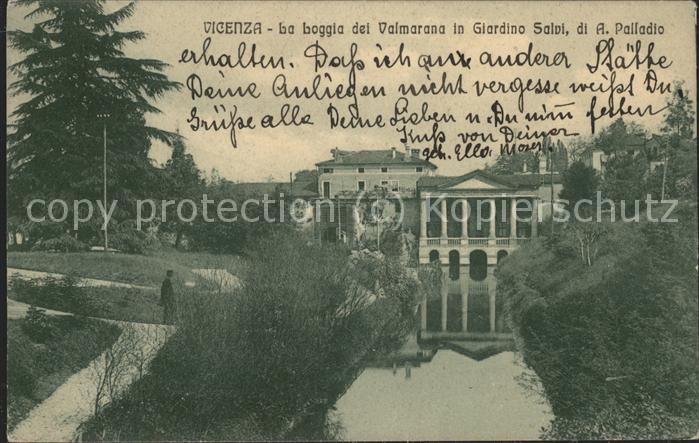 VICENZA - La loggia dei Valmarana in Giardino Salvi, di A. Palladio
erhalten. Daß ich an anderer Stätte
Deine Anliegen nicht vergesse weißt Du.
Grüße alle Deine Lieben u. Du nim̄ festen
Kuß von Deiner
Ella
copyright protection © copyright protection Kopierschutz